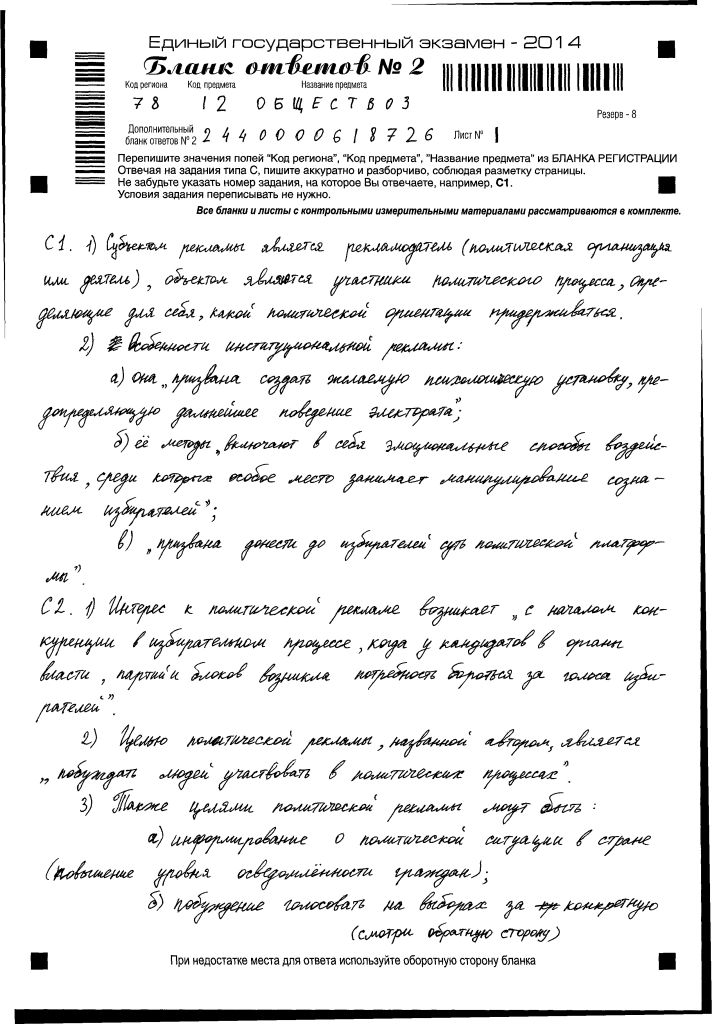 Единый государственный экзамен - 2014
Бланк ответов № 2
Код региона Код предмета Название предмета
78 12 ОБЩЕСТВОЗ
Резерв - 8
Дополнительный
бланк ответов № 2 2440000618726 Лист № 1
Перепишите значения полей "Код региона", "Код предмета", "Название предмета" из БЛАНКА РЕГИСТРАЦИИ
Отвечая на задания типа С, пишите аккуратно и разборчиво, соблюдая разметку страницы.
Не забудьте указать номер задания, на которое Вы отвечаете, например, С1.
Условия задания переписывать не нужно.
Все бланки и листы с контрольными измерительными материалами рассматриваются в комплекте.
С1. 1) Субъектом рекламы является рекламодатель (политическая организация
или деятель), объектом являются участники политического процесса, опре-
деляющие для себя, какой политической ориентации придерживаться.
2) Особенности институциональной рекламы:
а) она „призвана создать желаемую психологическую установку, пре-
допределяющую дальнейшее поведение электората";
б) её методы „включают в себя эмоциональные способы воздейс-
твия, среди которых особое место занимает манипулирование созна-
нием избирателей";
в) „призвана донести до избирателей суть политической платфор-
мы".
С2. 1) Интерес к политической рекламе возникает „с началом кон-
куренции в избирательном процессе, когда у кандидатов в органы
власти, партий и блоков возникла потребность бороться за голоса изби-
рателей".
2) Целью политической рекламы, названной автором, является
„побуждать людей участвовать в политических процессах".
3) Также целями политической рекламы могут быть:
а) информирование о политической ситуации в стране
(повышение уровня осведомлённости граждан);
б) побуждение голосовать на выборах за конкретную
(смотри обратную сторону)
При недостатке места для ответа используйте оборотную сторону бланка